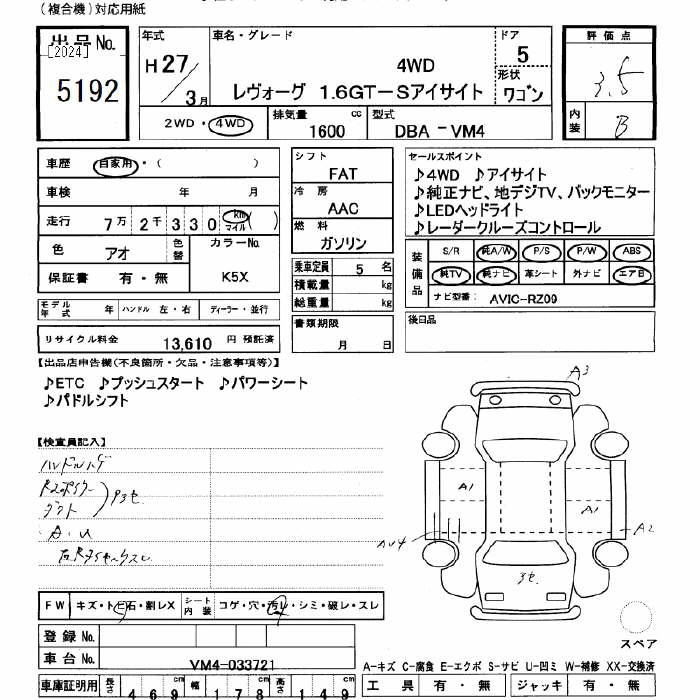 (複合機)対応用紙
出品No.
[2024]
5192
年式
H27/3月
車名・グレード
4WD
レヴォーグ 1.6GT-Sアイサイト
ドア
5
形状
ワゴン
評価点
3.5
内装
B
2WD・4WD
排気量
1600 cc
型式
DBA-VM4
車歴 自家用・( )
車検 年 月
走行 7万2千330 km マイル ( )
色 アオ 色替
カラーNo. K5X
保証書 有・無
シフト
FAT
冷房
AAC
燃料
ガソリン
乗車定員 5 名
積載量 kg
総重量 kg
書類期限
月 日
セールスポイント
♪4WD ♪アイサイト
♪純正ナビ、地デジTV、バックモニター
♪LEDヘッドライト
♪レーダークルーズコントロール
装備品
S/R 純A/W P/S P/W ABS
純TV 純ナビ 革シート 外ナビ エアB
ナビ型番: AVIC-RZ09
後日品
モデル年式 年 ハンドル 左・右 ディーラー・並行
リサイクル料金 13,610 円 預託済
【出品店申告欄(不良箇所・欠品・注意事項等)】
♪ETC ♪プッシュスタート ♪パワーシート
♪パドルシフト
【検査員記入】
ハンドルハゲ
A・U
A3
A1
A1
A2
AU4
FW キズ・トビ石・割レX
シート内装 コゲ・穴・汚レ・シミ・破レ・スレ
登録No.
車台No. VM4-033721
スペア
A-キズ C-腐食 E-エクボ S-サビ U-凹ミ W-補修 XX-交換済
車庫証明用 長さ 469 cm 幅 178 cm 高さ 149 cm
工具 有・無 ジャッキ 有・無